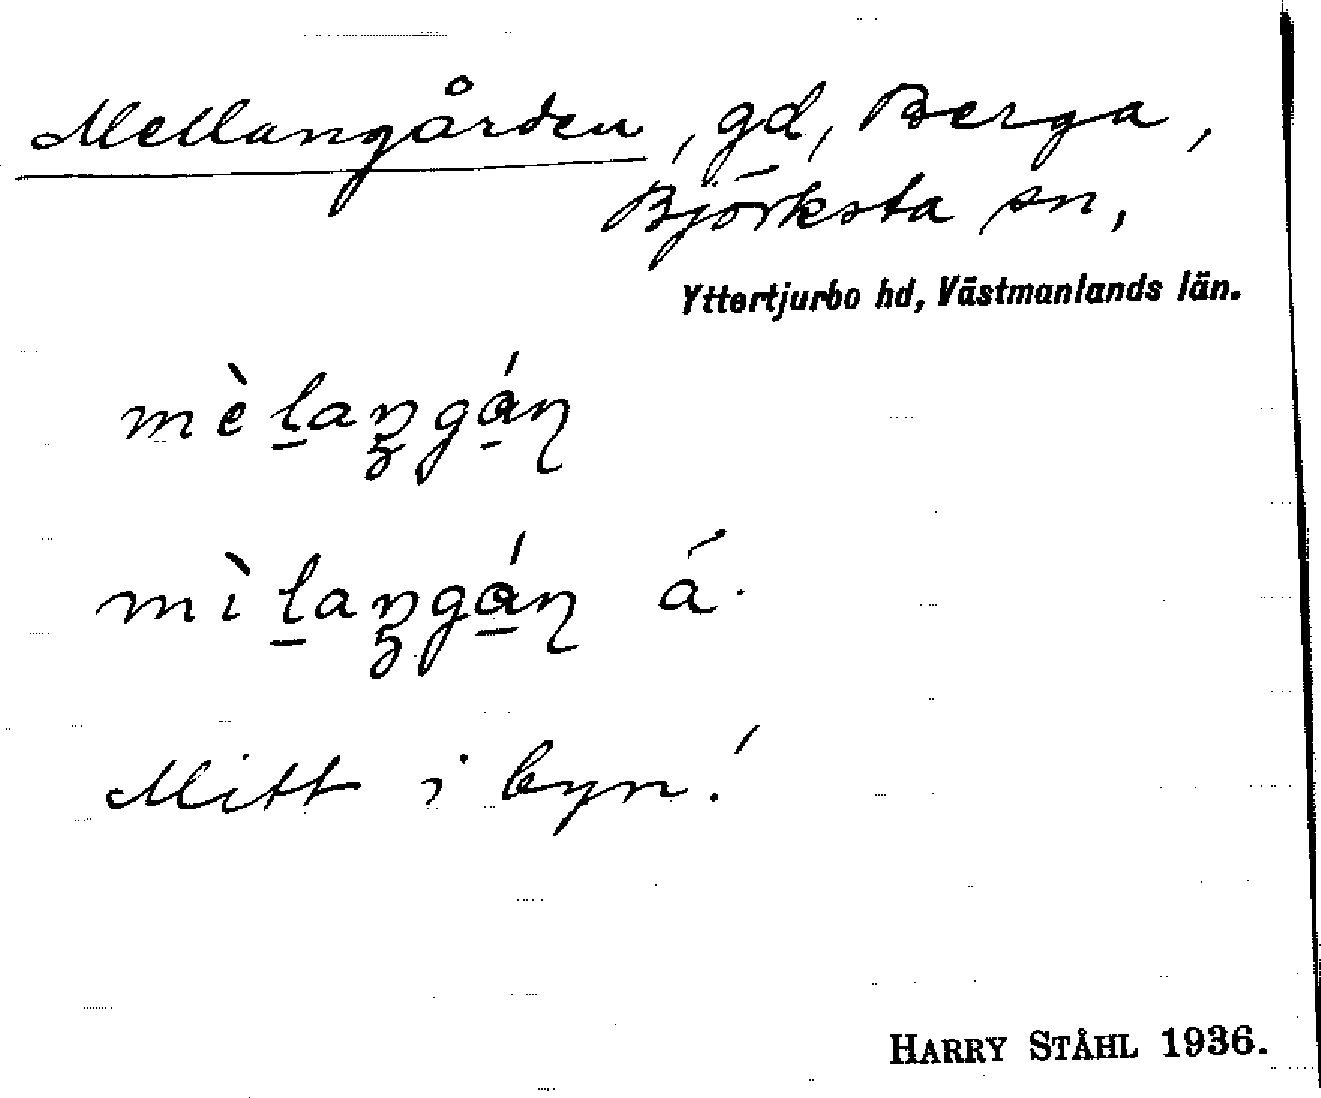 Mellangården, gd, Berga,
Björksta sn,
Yttertjurbo hd, Västmanlands län.
mèḻaŋgá̱ɳ
mìḻaŋgá̱ɳ á.
Mitt i byn!
HARRY STÅHL 1936.